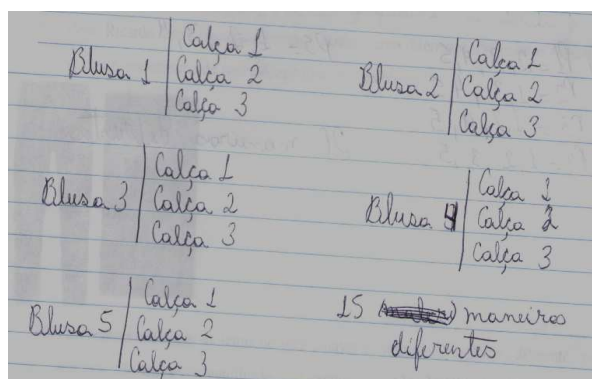 Blusa 1 | Calça 1
Calça 2
Calça 3
Blusa 2 | Calça 1
Calça 2
Calça 3
Blusa 3 | Calça 1
Calça 2
Calça 3
Blusa 4 | Calça 1
Calça 2
Calça 3
Blusa 5 | Calça 1
Calça 2
Calça 3
15 maneiras
diferentes